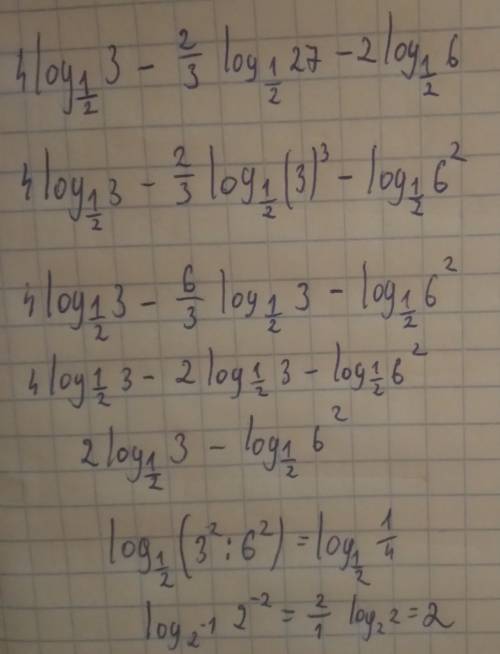 4 log_{1/2} 3 - 2/3 log_{1/2} 27 - 2 log_{1/2} 6
4 log_{1/2} 3 - 2/3 log_{1/2} (3)^3 - log_{1/2} 6^2
4 log_{1/2} 3 - 6/3 log_{1/2} 3 - log_{1/2} 6^2
4 log_{1/2} 3 - 2 log_{1/2} 3 - log_{1/2} 6^2
2 log_{1/2} 3 - log_{1/2} 6^2
log_{1/2} (3^2 : 6^2) = log_{1/2} 1/4
log_{2^{-1}} 2^{-2} = 2/1 log_2 2 = 2